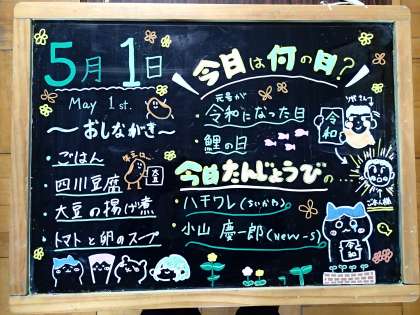 5月1日
May 1st.
〜おしながき〜
・ごはん
・四川豆腐
・大豆の揚げ煮
・トマトと卵のスープ
大豆
今日は何の日?
元号が
・令和になった日
・鯉の日
令和
今日たんじょうびの…
・ハチワレ(ちいかわ)
・小山慶一郎(NEWS)
ご本人様